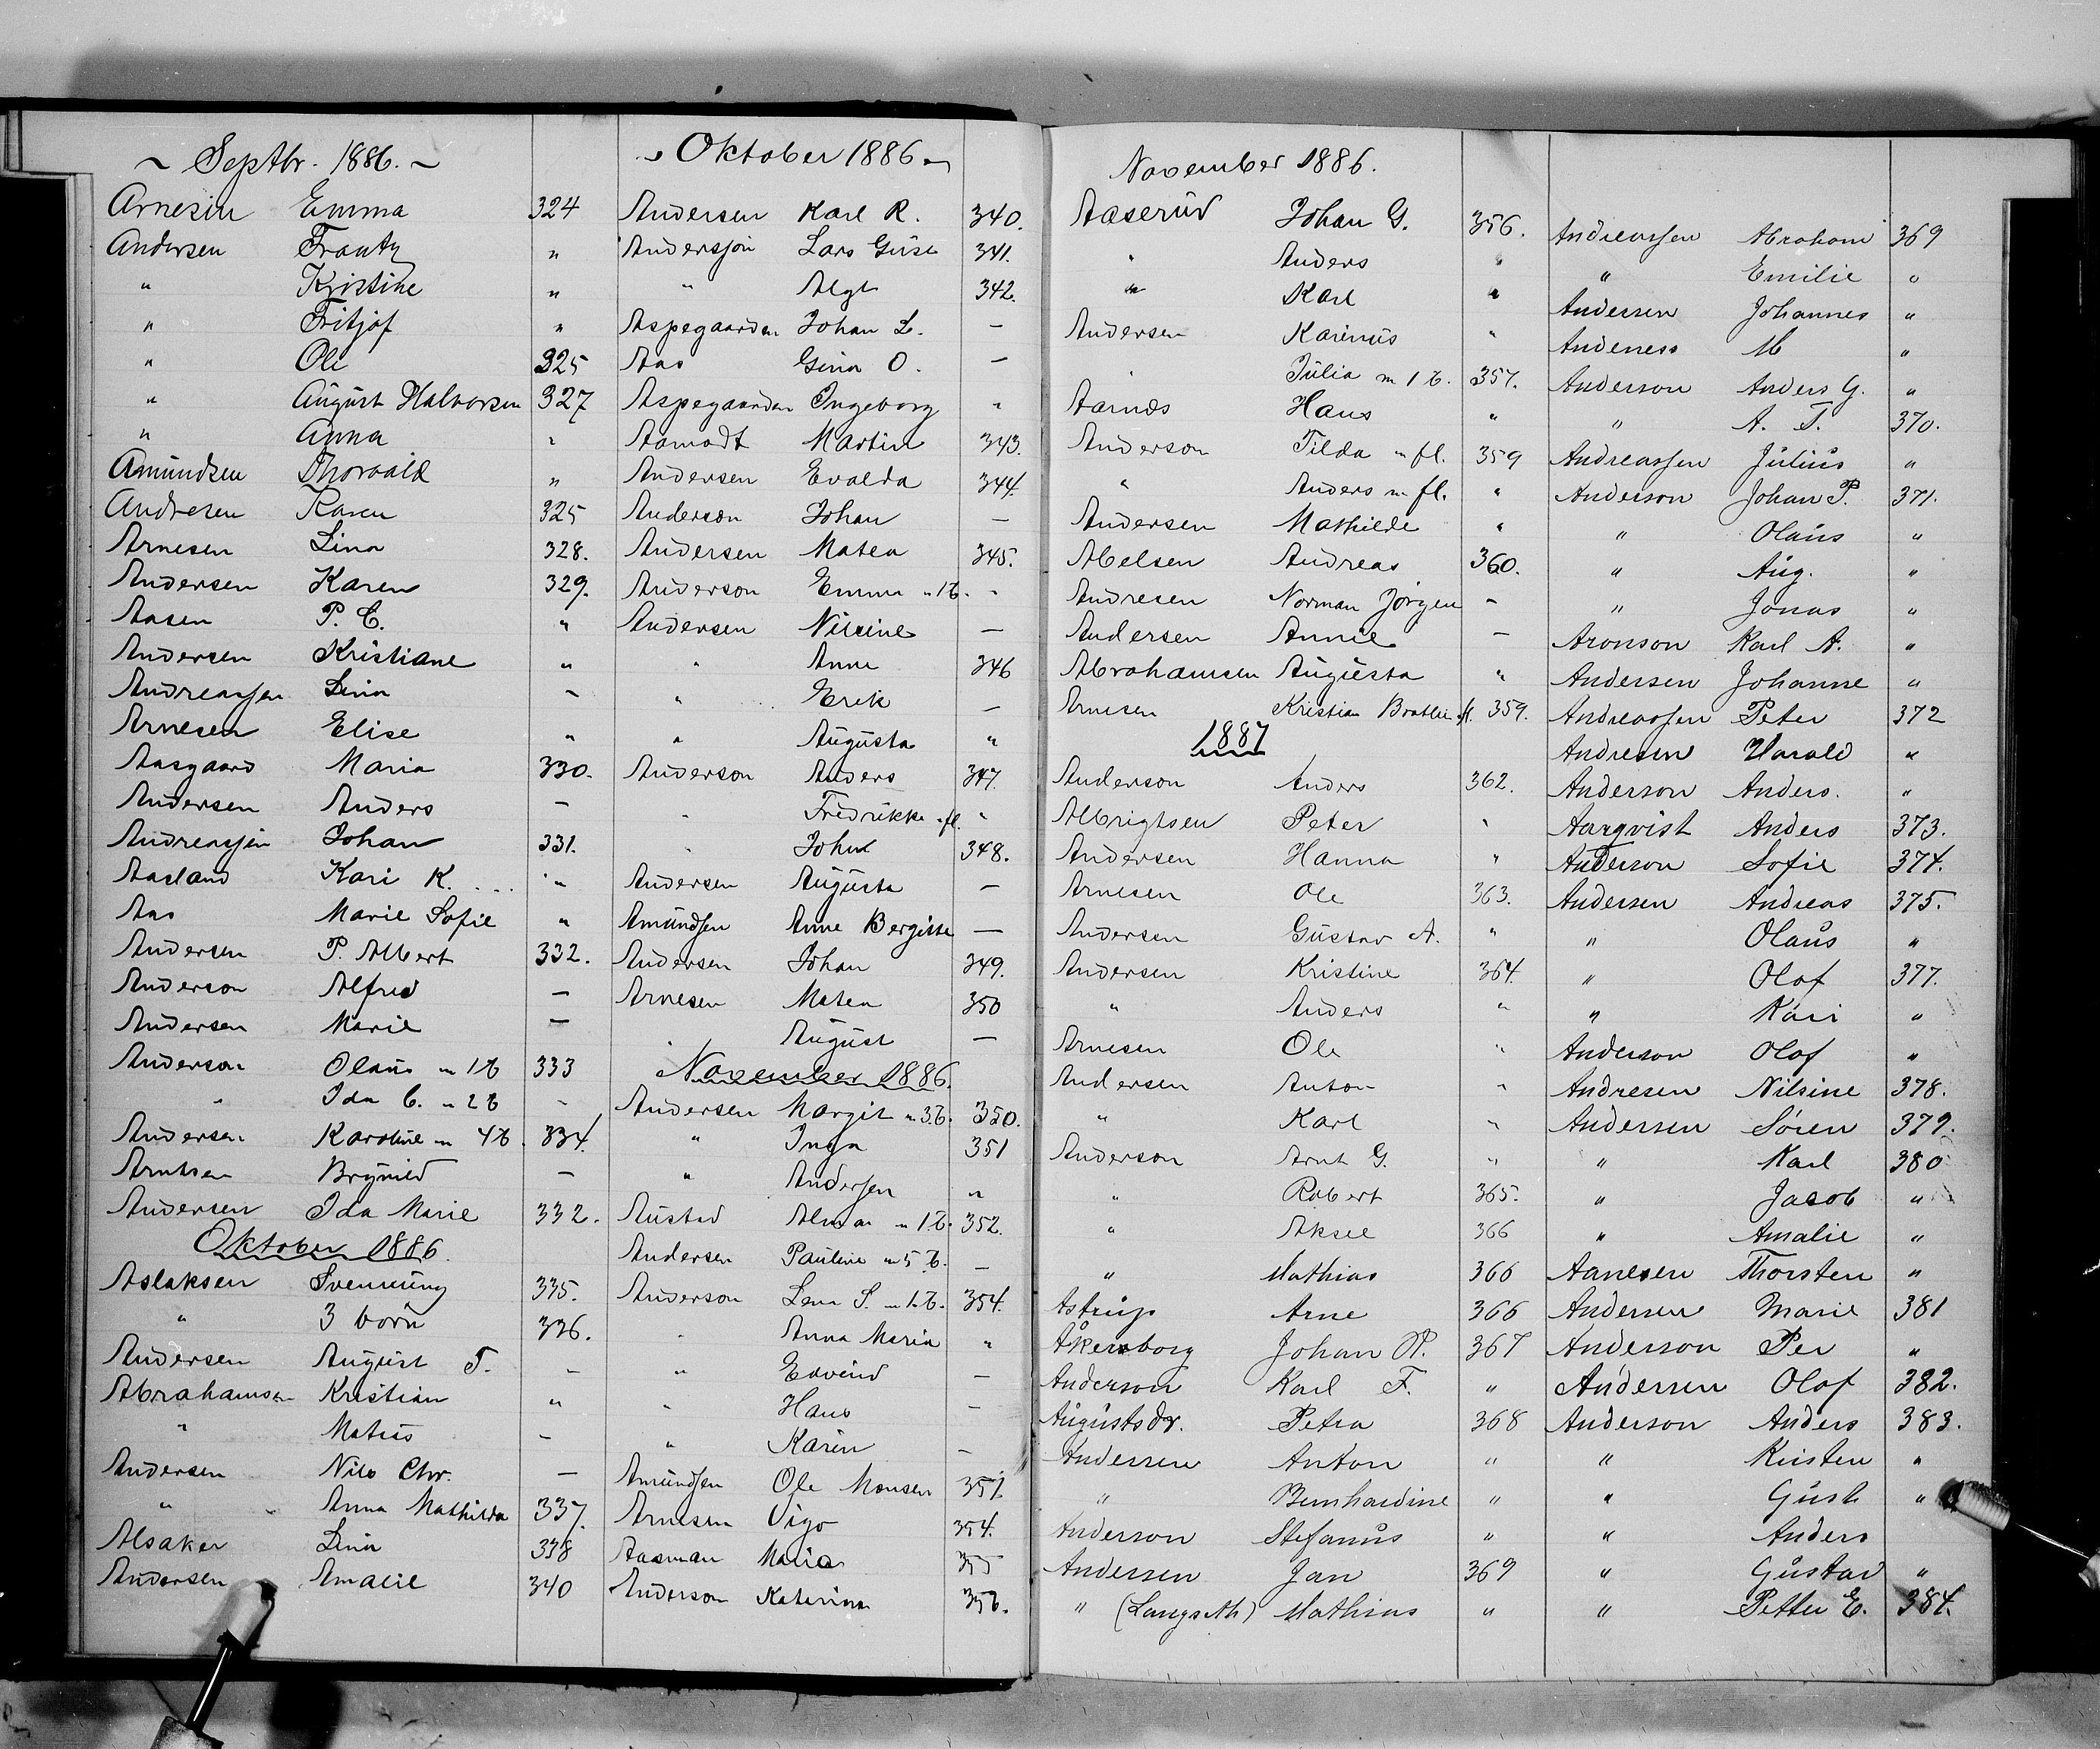 ~ Septbr. 1886. ~
Arnesen Emma 324
Andersen Frantz "
" Kristine "
" Fritjof "
" Ole 325
" August Halvorsen 327
" Anna "
Amundsen Thorvald "
Andresen Karen 325
Arnesen Lina 328.
Andersen Karen 329.
Aasen P. C. "
Andersen Kristiane "
Andreassen Lina -
Arnesen Elise "
Aasgaard Maria 330.
Andersen Anders -
Andreassen Johan 331.
Aasland Kari K. ... "
Aas Marie Sofie "
Andersen P. Albert 332.
Anderson Alfred -
Andersen Marie -
Anderson Olaus m 1 b 333
" Ida C. m 2 b -
Andersen Karoline m 4 b. 334.
Arntsen Brynild -
Andersen Ida Marie 332.
Oktober 1886.
Aslaksen Svennung 335.
" 3 börn 336.
Andersen August T. -
Abrahamsen Kristian "
" Matis -
Andersen Nils Chr. -
" Anna Mathilda 337.
Alsaker Lina 338
Andersen Amalie 340
~ Oktober 1886 ~
Andersen Karl R. 340.
Anderssön Lars Gust 341.
" Algt 342.
Aspegaarden Johan L. -
Aas Gina O. -
Aspegaarden Ingeborg "
Aamodt Martin 343.
Andersen Evalda 344.
Anderson Johan -
Andersen Matea 345.
Anderson Emma m 1 b. "
Andersen Nilsine -
" Anne 346
" Erik -
" Augusta "
Anderson Anders 347.
" Fredrikke m fl. "
" John 348.
Andersen Augusta -
Amundsen Anne Bergitte -
Andersen Johan 349.
Arnesen Matea 350
" August -
November 1886.
Andersen Margit m 3 b. 350.
" Inga 351
" Andersen "
Austad Alma m 1 b. 352.
Andersen Pauline m 5 b. -
Anderson Lena S. m 1 b. 354.
" Anna Maria "
" Edvind -
" Hans -
" Karin -
Amundsen Ole Monsen 351.
Arnesen Vigo 354.
Aasman Maria 355
Anderson Katerina 356.
November 1886.
Aaserud Johan G. 356.
" Anders "
" Karl "
Andersen Karinus "
" Julia m 1 b. 357.
Aarnes Hans "
Anderson Tilda m fl. 359
" Anders m fl. "
Andersen Mathilde "
Abelsen Andreas 360.
Andresen Norman Jörgen -
Andersen Annie -
Abrahamsen Augusta "
Arnesen Kristian Bratlie fl. 359.
1887
Anderson Anders 362.
Albrigtsen Peter "
Andersen Hanna "
Arnesen Ole 363.
Andersen Gustav A. "
Andersen Kristine 364.
" Anders "
Arnesen Ole "
Andersen Anton "
" Karl "
Anderson Arnt G. "
" Robert 365.
" Aksel 366
" Mathias 366
Astrup Arne 366
Åkersborg Johan P. 367
Anderson Karl F. "
Augustsdr. Petra 368
Andersen Anton "
" Bernhardine "
Anderson Stefanus "
Andersen Jan 369
" (Langseth) Mathias "
Andreassen Abraham 369
" Emilie "
Andersen Johannes "
Andeness M "
Anderson Anders G. "
" A. T. 370.
Andreassen Julius "
Anderson Johan P. 371.
" Olaus "
" Aug. "
" Jonas "
Aronson Karl A. "
Andersen Johanne "
Andreassen Peter 372
Andresen Harald "
Anderson Anders. "
Aarqvist Anders 373.
Anderson Sofie 374.
Andersen Andreas 375.
" Olaus "
" Olof 377.
" Kari "
Anderson Olof "
Andresen Nilsine 378.
Andersen Sören 379.
" Karl 380
" Jacob "
" Amalie "
Aanesen Thorsten "
Andersen Marie 381
Anderson Per "
Andersen Olof 382.
Anderson Anders 383.
" Kristen "
" Gust "
" Anders
" Gustav "
" Petter E. 384.